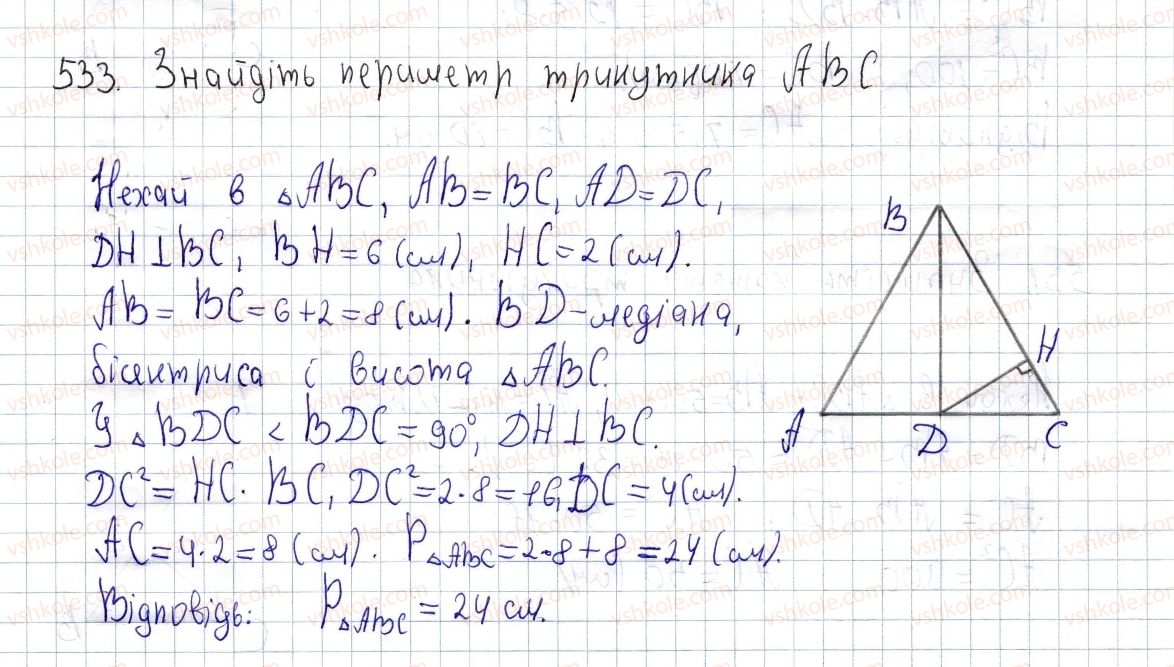 533. Знайдіть периметр трикутника ABC
Нехай в △ABC, AB=BC, AD=DC,
DH⊥BC, BH=6 (см), HC=2 (см).
AB=BC=6+2=8 (см). BD-медіана,
бісектриса і висота △ABC.
У △BDC <BDC=90°, DH⊥BC.
DC²=HC·BC, DC²=2·8=16, DC=4(см).
AC=4·2=8 (см). P△ABC=2·8+8=24 (см).
Відповідь: P△ABC=24 см.
B
H
A
D
C
vshkole.com